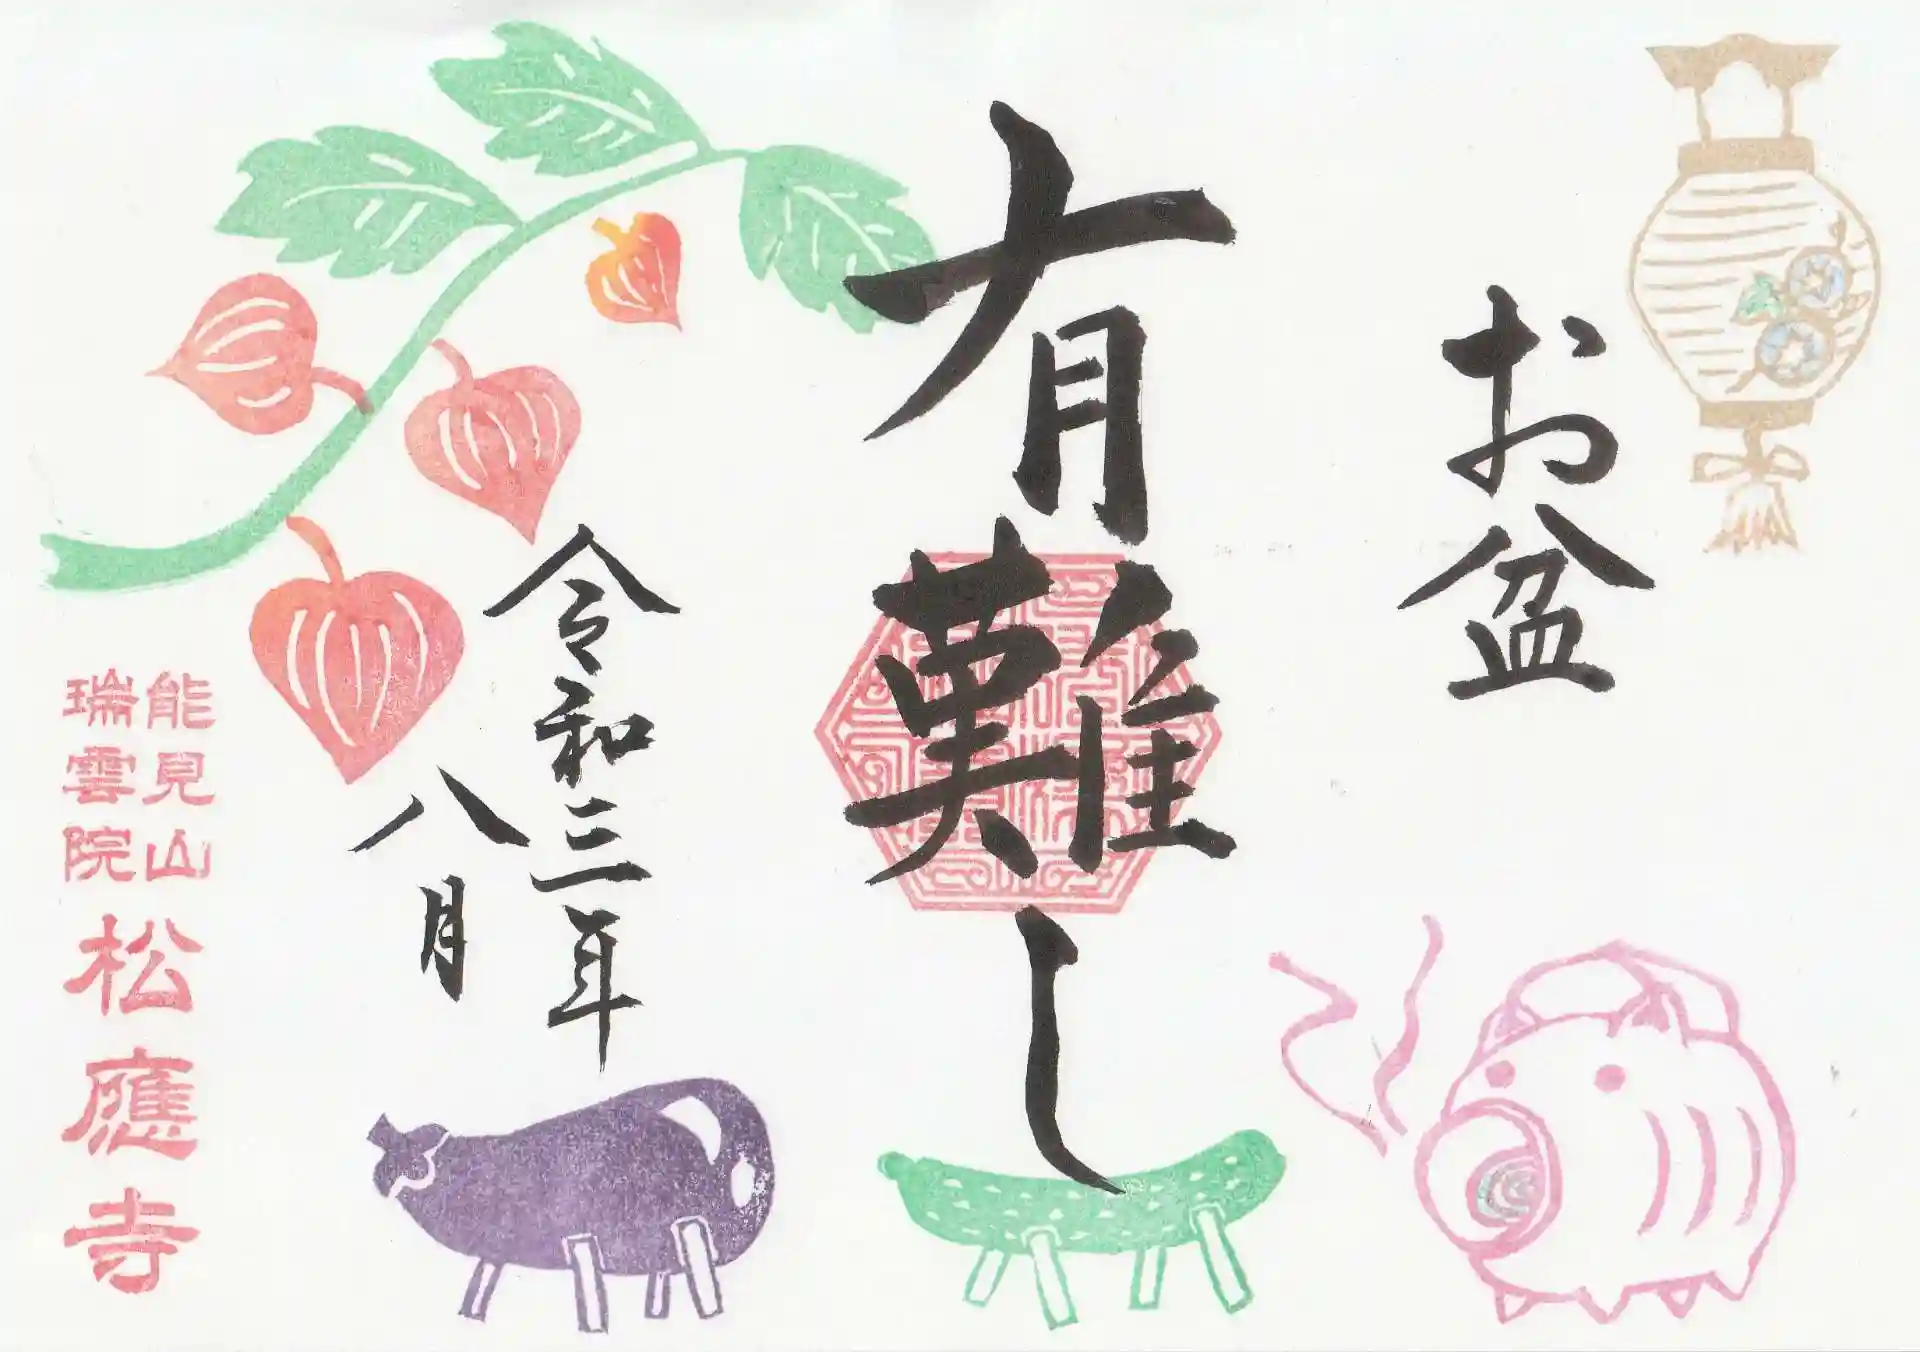 お盆
有難し
令和三年
八月
能見山
瑞雲院
松應寺